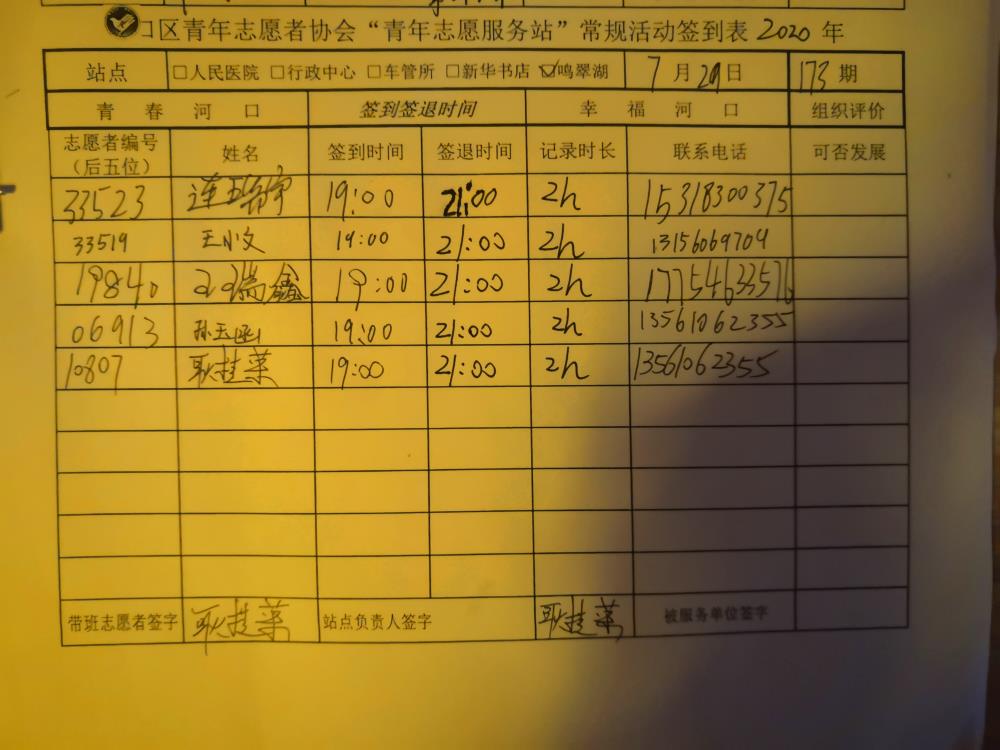 口区青年志愿者协会“青年志愿服务站”常规活动签到表 2020 年
站点 □人民医院 □行政中心 □车管所 □新华书店 ☑鸣翠湖 7月29日 173期
青春河口 签到签退时间 幸福河口 组织评价
志愿者编号（后五位） 姓名 签到时间 签退时间 记录时长 联系电话 可否发展
33523 连 19:00 21:00 2h 15318300375
33519 王小文 19:00 21:00 2h 13156069704
19840 瑞鑫 19:00 21:00 2h 17754633576
06913 孙玉函 19:00 21:00 2h 13561062355
10807 耿桂荣 19:00 21:00 2h 13561062355
带班志愿者签字 耿桂荣 站点负责人签字 耿桂荣 被服务单位签字